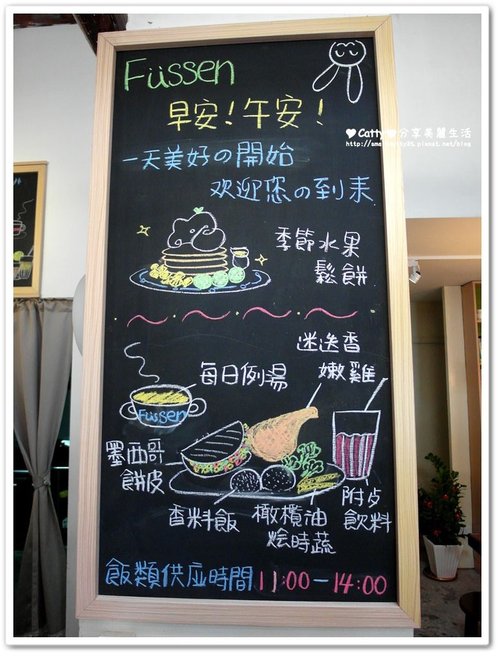 Füssen
♥Catty@分享美麗生活
早安!午安!
一天美好の開始
欢迎您の到来
季節水果
鬆餅
迷迭香
嫩雞
每日例湯
Füssen
墨西哥
餅皮
香料飯
橄欖油
燴時蔬
附点
飲料
飯類供应時間11:00-14:00